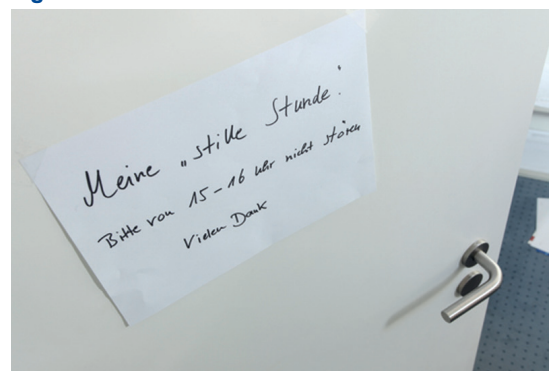 Meine „stille Stunde":
Bitte von 15-16 Uhr nicht stören
Vielen Dank